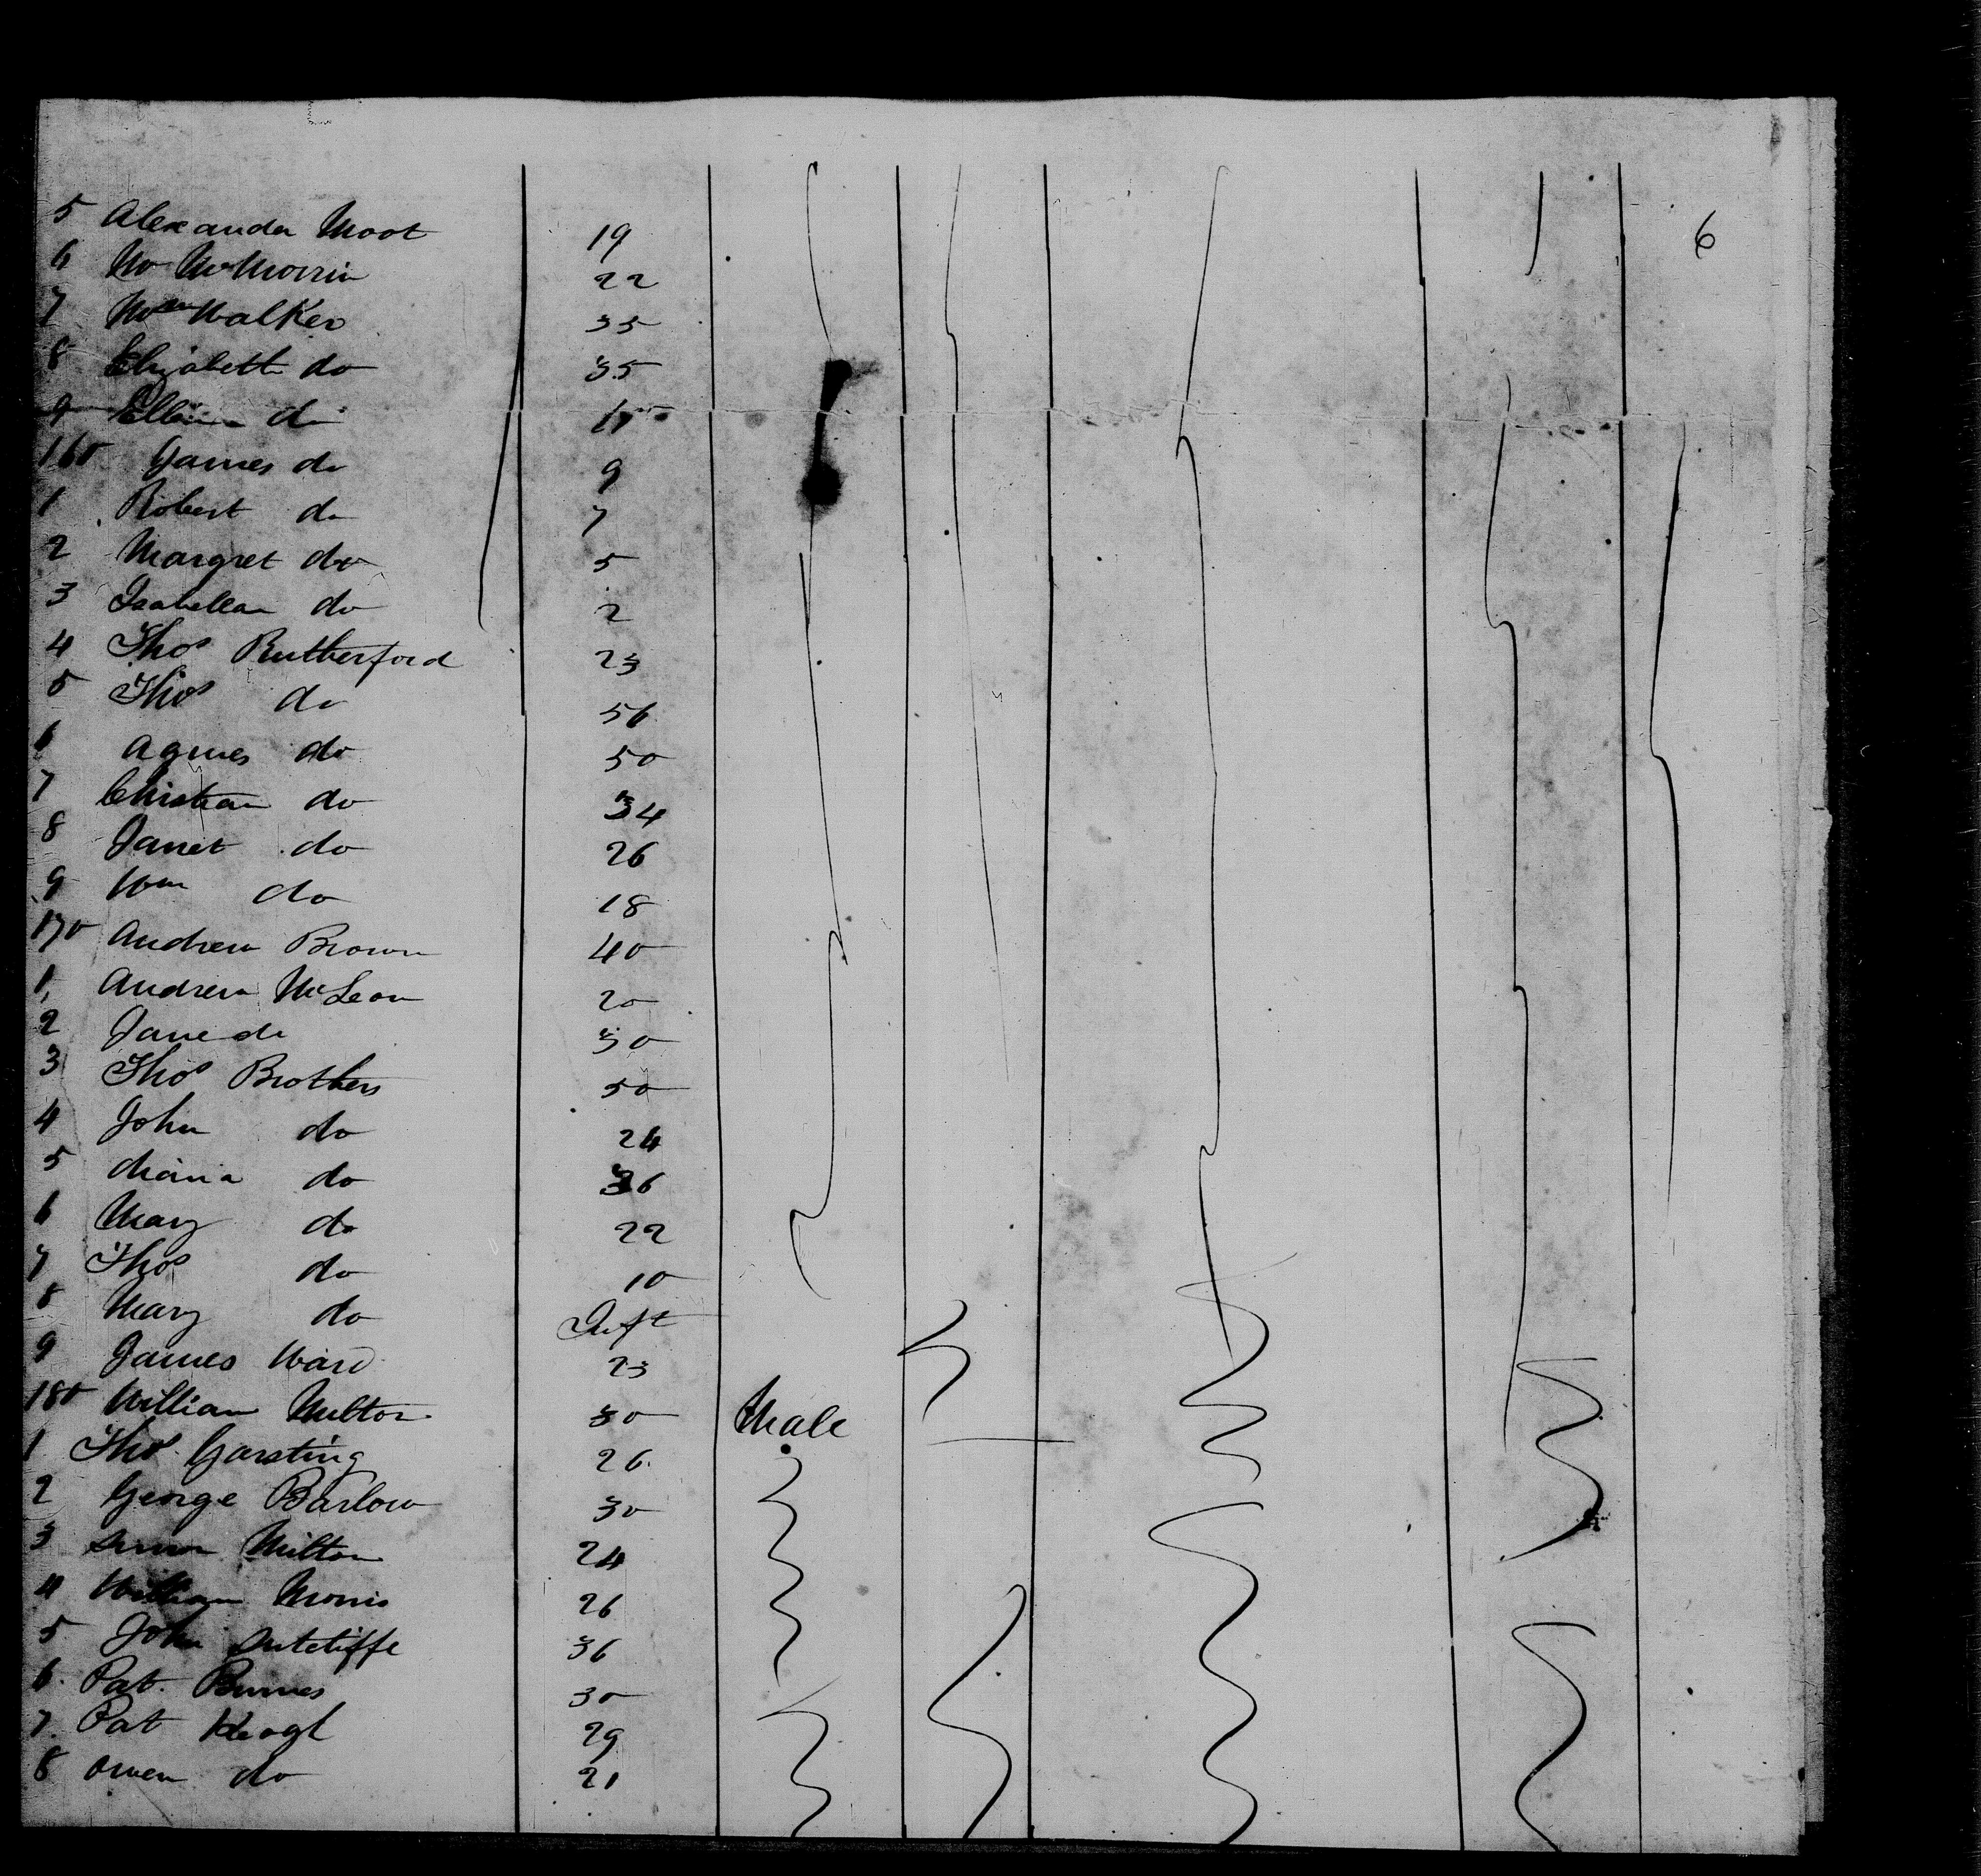 6
5 Alexander Moot 19
6 Wm McMorrin 22
7 Wm Walker 35
8 Elizabeth do 35
9 do
160 James do 9
1 Robert do 7
2 Margret do 5
3 Isabella do 2
4 Thos Rutherford 23
5 Thos do 56
6 Agnes do 50
7 Christian do 34
8 Janet do 26
9 Wm do 18
170 Andrew Brown 40
1 Andrew McLean 20
2 Jane do 30
3 Thos Brothers 50
4 John do 24
5 Maria do 36
6 Mary do 22
7 Thos do 10
8 Mary do Inft
9 James Ward 23
180 William Milton 30 Male
1 Thos Garsting 26
2 George Barlow 30
3 Milton 24
4 William Morris 26
5 John Sutcliffe 36
6 Pat. Burnes 30
7 Pat Keogh 29
8 Owen do 21